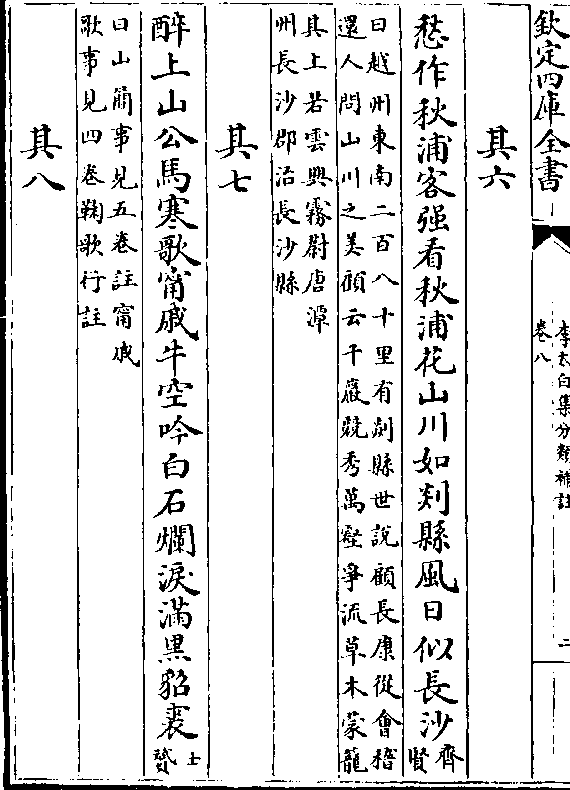 欽定四庫全書
李太白集分類補註
卷八
二
其六
愁作秋浦客强看秋浦花山川如剡縣風日似長沙齊賢
曰越州東南二百八十里有剡縣世說顧長康從會稽
還人問山川之美顧云千巖競秀萬壑爭流草木蒙籠
其上若雲興霧蔚唐潭
州長沙郡治長沙縣
其七
醉上山公馬寒歌甯戚牛空吟白石爛淚滿黒貂裘士贇
曰山簡事見五卷註甯戚
歌事見四卷鞠歌行註
其八